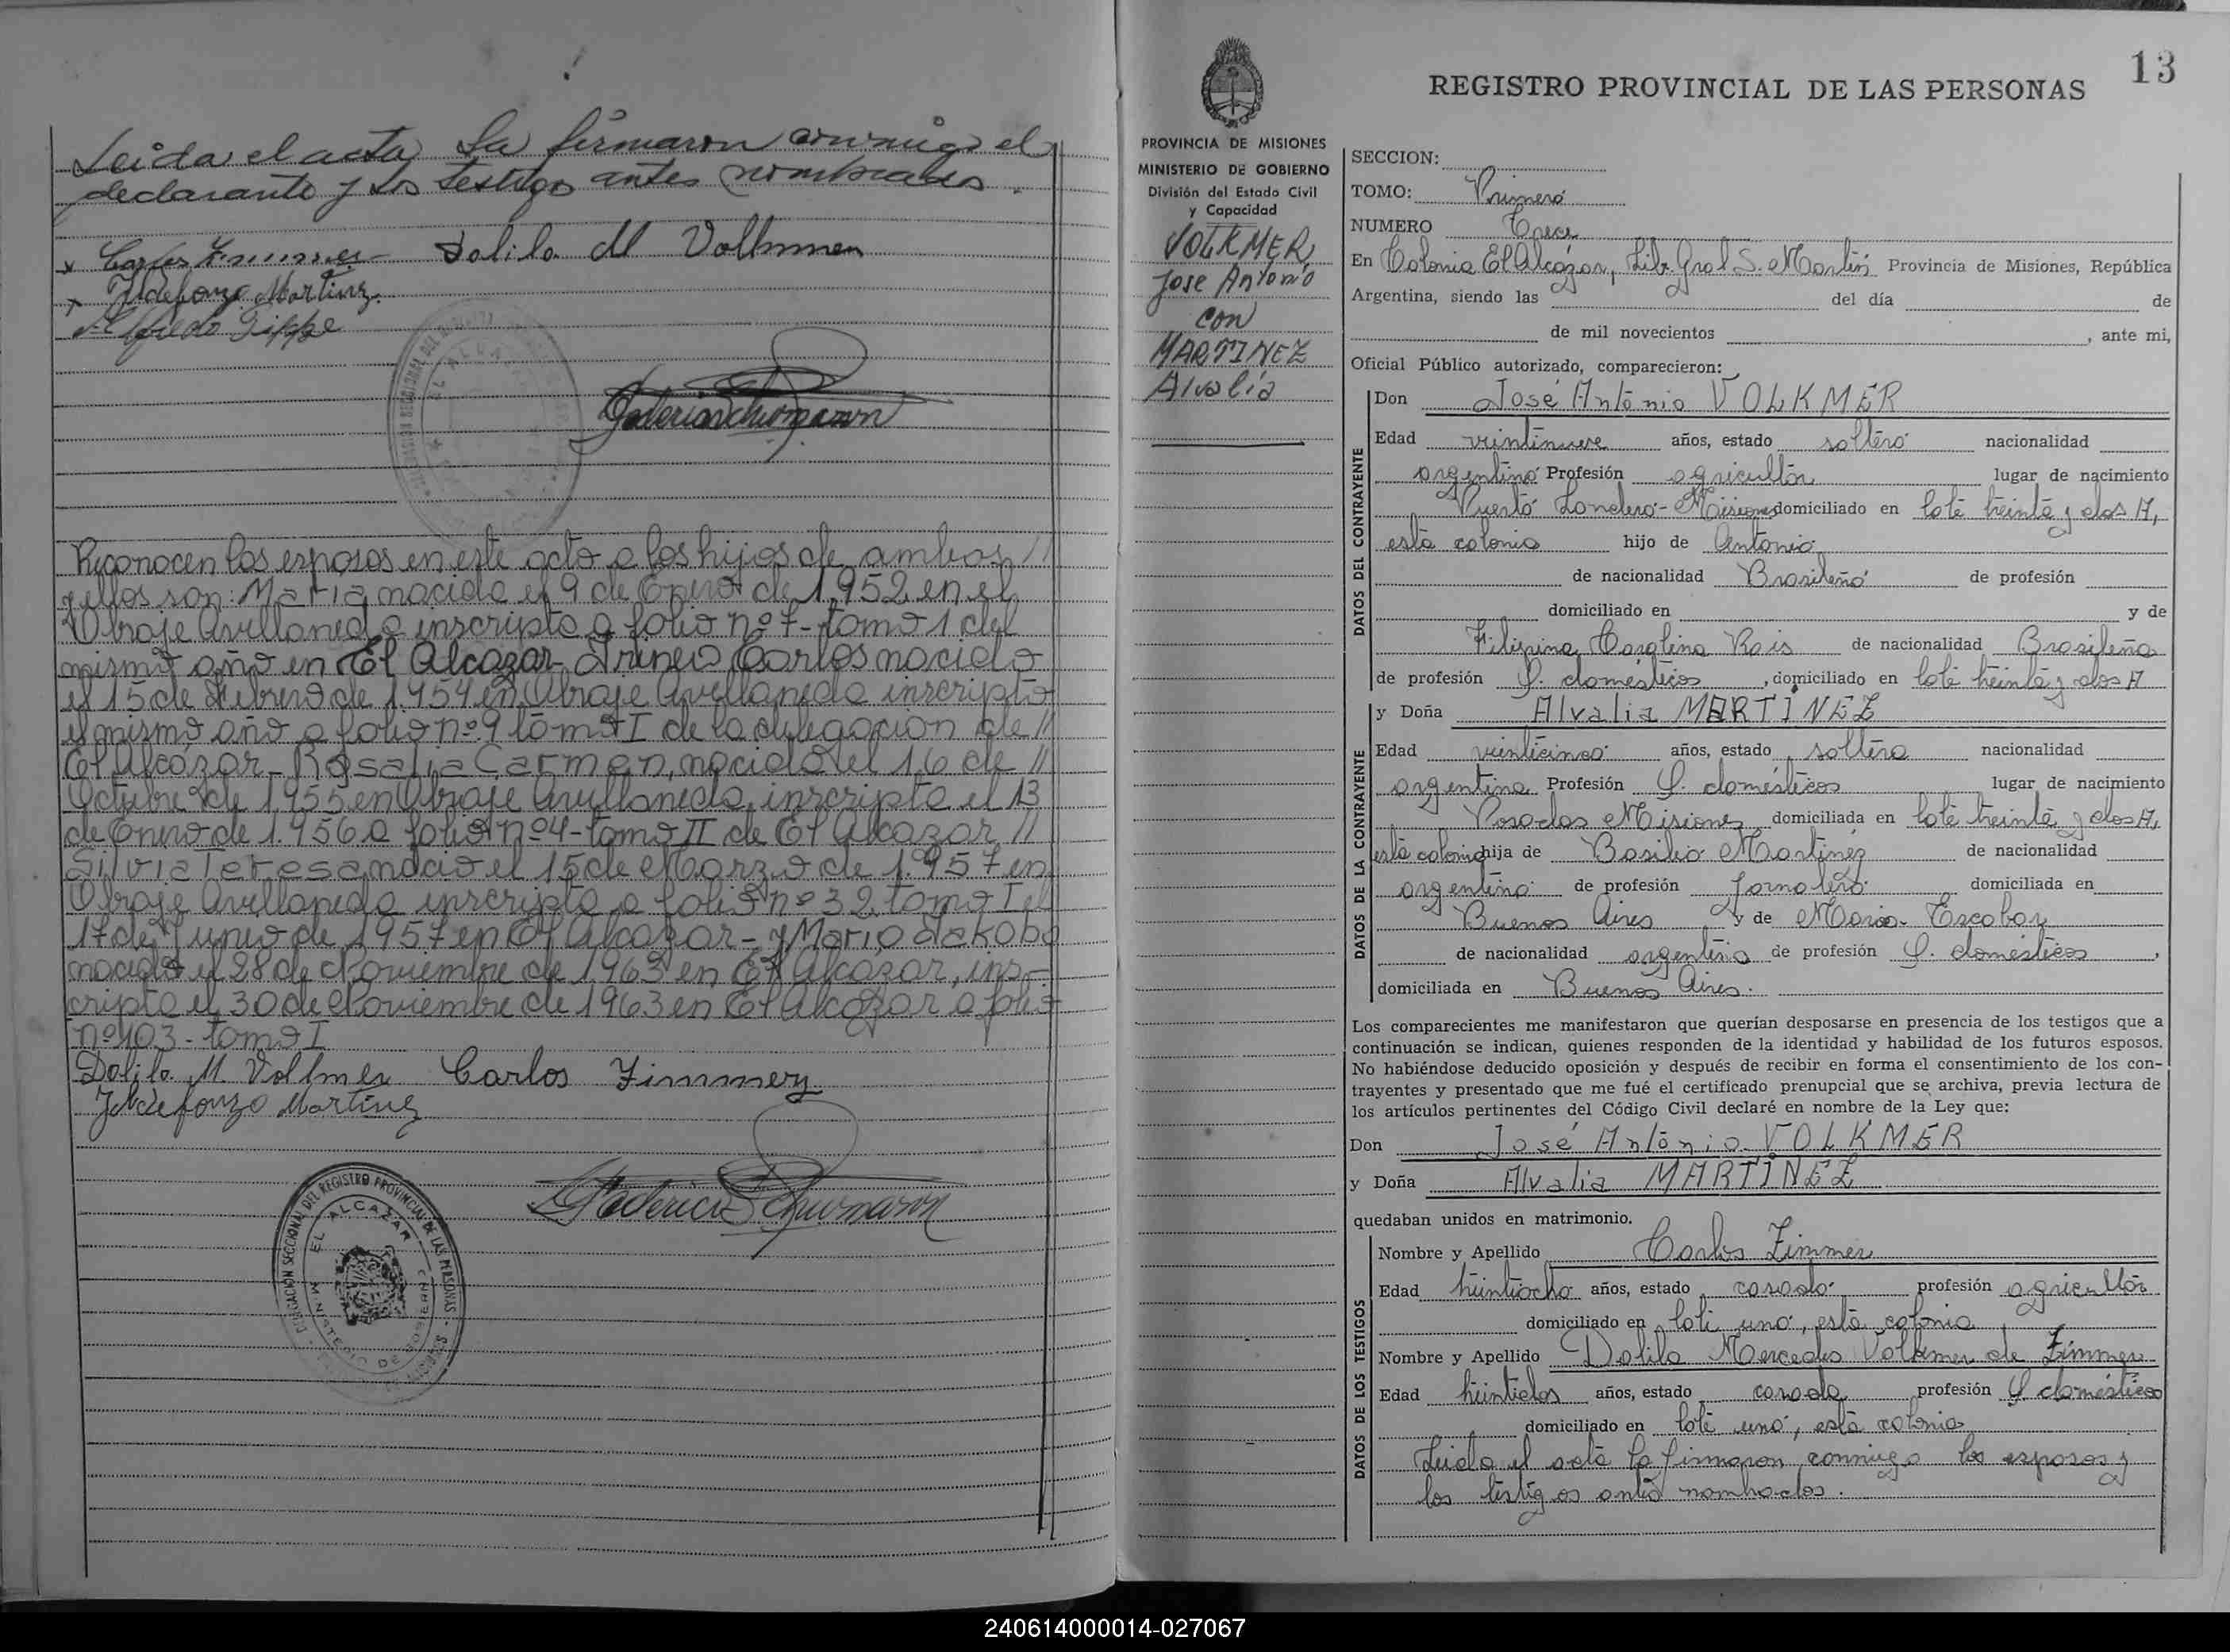 Leída el acta, la firmaron conmigo el
declarante y los testigos antes nombrados.
Carlos Zimmer Dolila M Vollmmer
Ildefonzo Martinez
Alfredo
Reconocen los esposos en este acto a los hijos de ambos //
y ellos son: Maria nacida el 9 de Enero de 1.952 en el
Obraje Avellaneda inscripta a folio nº 7 - tomo 1 del
mismo año en El Alcazar - Irineo Carlos nacido
el 15 de Febrero de 1.954 en Obraje Avellaneda inscripto
el mismo año a folio nº 9 tomo I de la delegacion de //
El Alcázar - Rosalia Carmen, nacida el 16 de //
Octubre de 1955 en Obraje Avellaneda, inscripta el 13
de Enero de 1.956 a folio nº 4 - tomo II de El Alcazar //
Silvia Teresa nació el 15 de Marzo de 1.957 en
Obraje Avellaneda inscripta a folio nº 32 tomo I el
17 de Junio de 1957 en El Alcazar - y Mario Jakobo
nacido el 28 de Noviembre de 1963 en El Alcazar, ins-
cripto el 30 de Noviembre de 1963 en El Alcazar a folio
nº 103 - tomo I
Dolila M. Vollmer Carlos Zimmer
Ildefonzo Martinez
DELEGACION SECCIONAL DEL REGISTRO PROVINCIAL DE LAS PERSONAS
EL ALCAZAR
MINISTERIO DE GOBIERNO
13
REGISTRO PROVINCIAL DE LAS PERSONAS
PROVINCIA DE MISIONES
MINISTERIO DE GOBIERNO
División del Estado Civil
y Capacidad
VOLKMER
Jose Antonio
con
MARTINEZ
Alvalia
SECCION:
TOMO: Primero
NUMERO Trece
En Colonia El Alcázar, Lib. Gral S. Martín Provincia de Misiones, República
Argentina, siendo las del día de
de mil novecientos , ante mi,
Oficial Público autorizado, comparecieron:
DATOS DEL CONTRAYENTE
Don José António VOLKMER
Edad veintinueve años, estado soltero nacionalidad
argentino Profesión agricultor lugar de nacimiento
Puerto Londero - Misiones domiciliado en lote treinta y dos A,
esta colonia hijo de Antonio
de nacionalidad Brasileño de profesión
domiciliado en y de
Filipina Carolina Rois de nacionalidad Brasileña
de profesión Q. domésticos, domiciliado en lote treinta y dos A
DATOS DE LA CONTRAYENTE
y Doña Alvalia MARTÍNEZ
Edad veinticinco años, estado soltera nacionalidad
argentina Profesión Q. domésticos lugar de nacimiento
Posadas Misiones domiciliada en lote treinta y dos A,
esta colonia hija de Basilio Martinez de nacionalidad
argentino de profesión Jornalero domiciliada en
Buenos Aires y de Maria Escobar
de nacionalidad argentina de profesión Q. domésticos,
domiciliada en Buenos Aires.
Los comparecientes me manifestaron que querían desposarse en presencia de los testigos que a
continuación se indican, quienes responden de la identidad y habilidad de los futuros esposos.
No habiéndose deducido oposición y después de recibir en forma el consentimiento de los con-
trayentes y presentado que me fué el certificado prenupcial que se archiva, previa lectura de
los artículos pertinentes del Código Civil declaré en nombre de la Ley que:
Don José António VOLKMER
y Doña Alvalia MARTÍNEZ
quedaban unidos en matrimonio.
DATOS DE LOS TESTIGOS
Nombre y Apellido Carlos Zimmer
Edad treintiocho años, estado casado profesión agricultor
domiciliado en lote uno, esta colonia
Nombre y Apellido Dolila Mercedes Volkmer de Zimmer
Edad treintidos años, estado casada profesión Q. domésticos
domiciliado en lote uno, esta colonia
Leida el acta la firmaron conmigo los esposos y
los testigos antes nombrados.
240614000014-027067